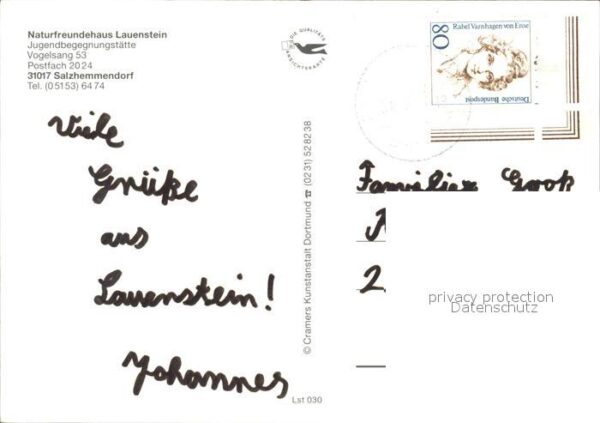 Naturfreundehaus Lauenstein
Jugendbegegnungstätte
Vogelsang 53
Postfach 20 24
31017 Salzhemmendorf
Tel. (0 51 53) 64 74
DIE QUALITÄTS
ANSICHTSKARTE
Rahel Varnhagen von Ense
80
Deutsche Bundespost
Viele
Grüße
aus
Lauenstein!
Johannes
© Cramers Kunstanstalt Dortmund ☎ (02 31) 52 82 38
Lst 030
Familie
2
privacy protection
Datenschutz